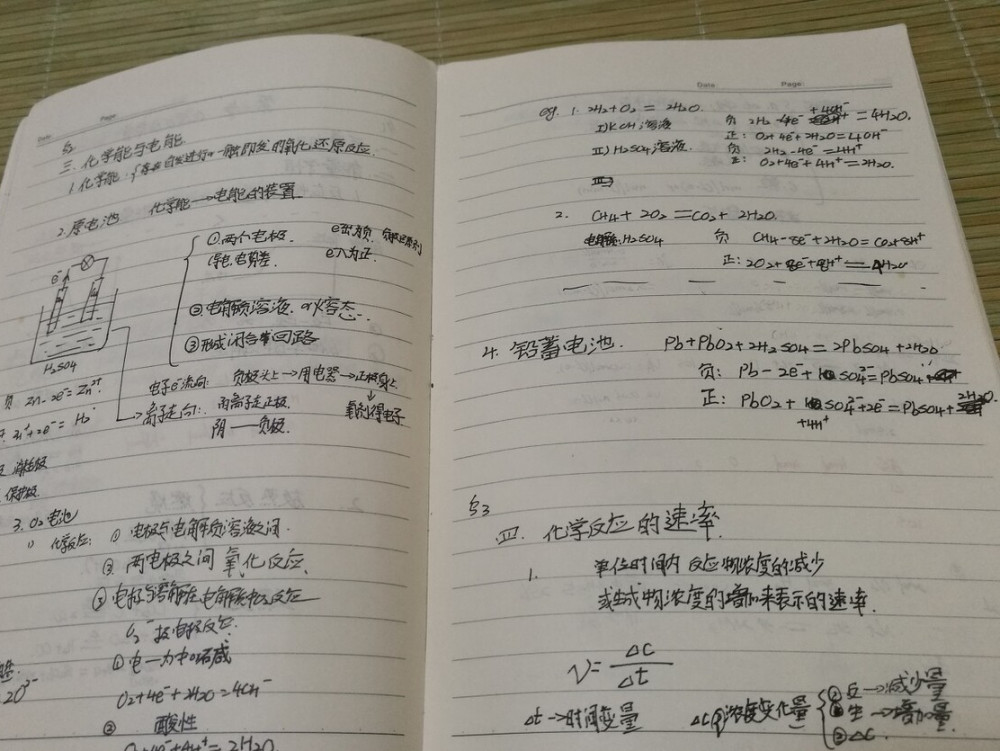 Date Page
§2
三. 化学能与电能
1. 化学能: 自发进行的氧化还原反应.
2. 原电池 化学能→电能的装置
① 两个电极. e⁻出为负.
导电, 电势差 e⁻入为正.
② 电解质溶液. or 熔态..
③ 形成闭合回路
e⁻
H₂SO₄
电子e⁻流向: 负极失上→用电器→正极
氧剂得电子
→离子走向: 阳离子走正极.
阴——负极.
负 Zn-2e⁻=Zn²⁺
消耗极
保护极
3. O₂电池
1) 化学反应: ① 电极与电解质溶液之间.
② 两电极之间 氧化反应.
③ 电极与溶解在电解质反应
① 电-力中 碱
O₂+4e⁻+2H₂O=4OH⁻
② 酸性
O₂+4e⁻+4H⁺=2H₂O
Date Page:
eg. 1. 2H₂+O₂=2H₂O.
I) KOH溶液 负 2H₂-4e⁻+4OH⁻=4H₂O.
正: O₂+4e⁻+2H₂O=4OH⁻
II) H₂SO₄溶液. 负 2H₂-4e⁻=4H⁺
正: O₂+4e⁻+4H⁺=2H₂O.
2. CH₄+2O₂=CO₂+2H₂O.
H₂SO₄ 负 CH₄-8e⁻+2H₂O=CO₂+8H⁺
正: 2O₂+8e⁻+8H⁺=4H₂O
4. 铅蓄电池. Pb+PbO₂+2H₂SO₄=2PbSO₄+2H₂O
负: Pb-2e⁻+SO₄²⁻=PbSO₄
正: PbO₂+SO₄²⁻+2e⁻=PbSO₄+2H₂O.
+4H⁺
§3
四. 化学反应的速率.
1. 单位时间内反应物浓度的减少
或生成物浓度的增加来表示的速率.
V=Δc/Δt
Δt→时间变量 Δc 浓度变化量
① 反→减少量
② 生→增加量
③ ΔC.